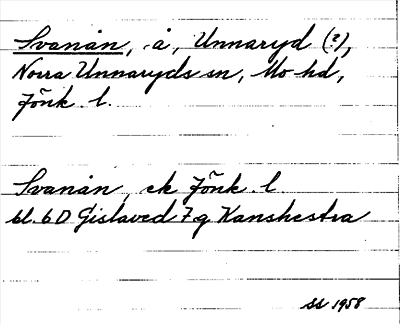 Svanån, å, Unnaryd (?),
Norra Unnaryds sn, Mo hd,
Jönk. l.
Svanån ek Jönk. l.
bl. 6 D Gislaved 7 g Kanshestra
ss 1958